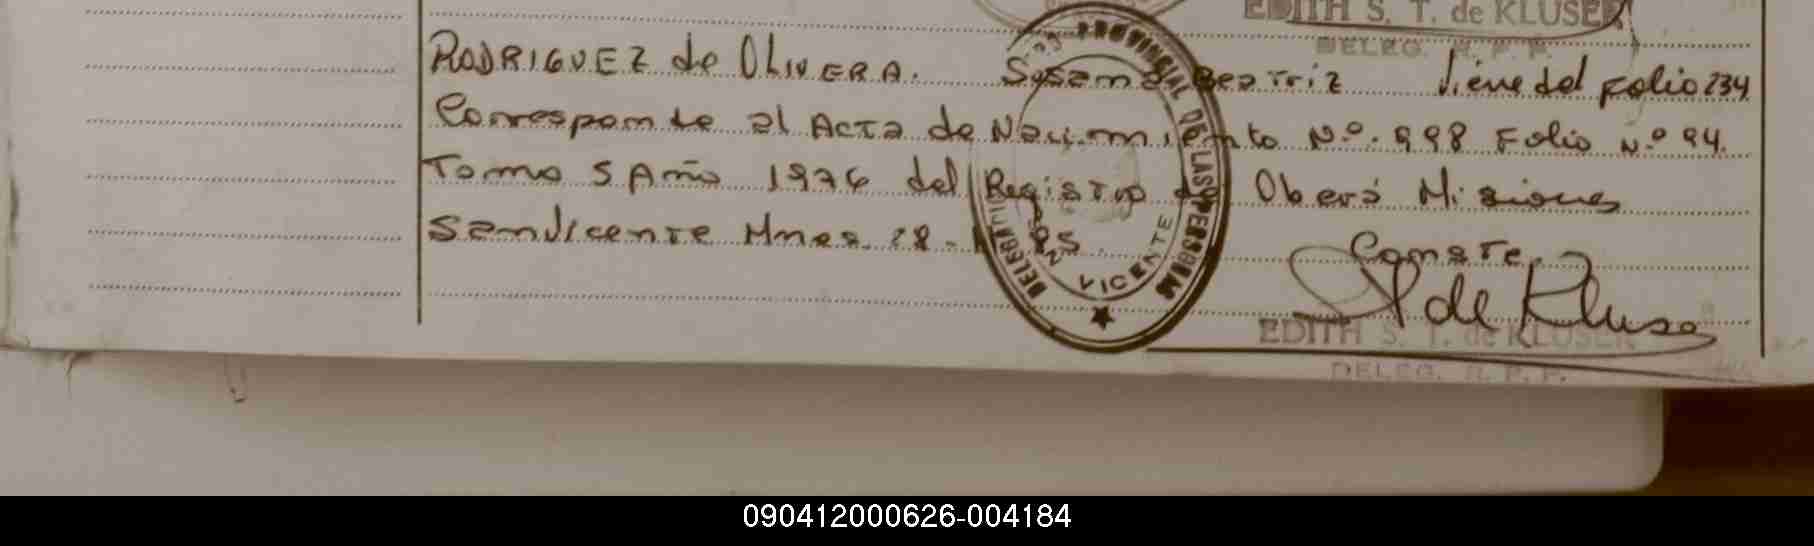 EDITH S. T. de KLUSER
DELEG. R. P. P.
RODRIGUEZ de OLIVERA. Susana Beatriz Viene del Folio 234
Corresponde al Acta de Nacimiento Nº. 998 Folio Nº 94.
Tomo 5 Año 1976 del Registro de Oberá Misiones
San Vicente Mnes. 28- 85.
Conste.
PROVINCIAL DE LAS PERSONAS
VICENTE
de Kluser
EDITH S. T. de KLUSER
DELEG. R. P. P.
090412000626-004184